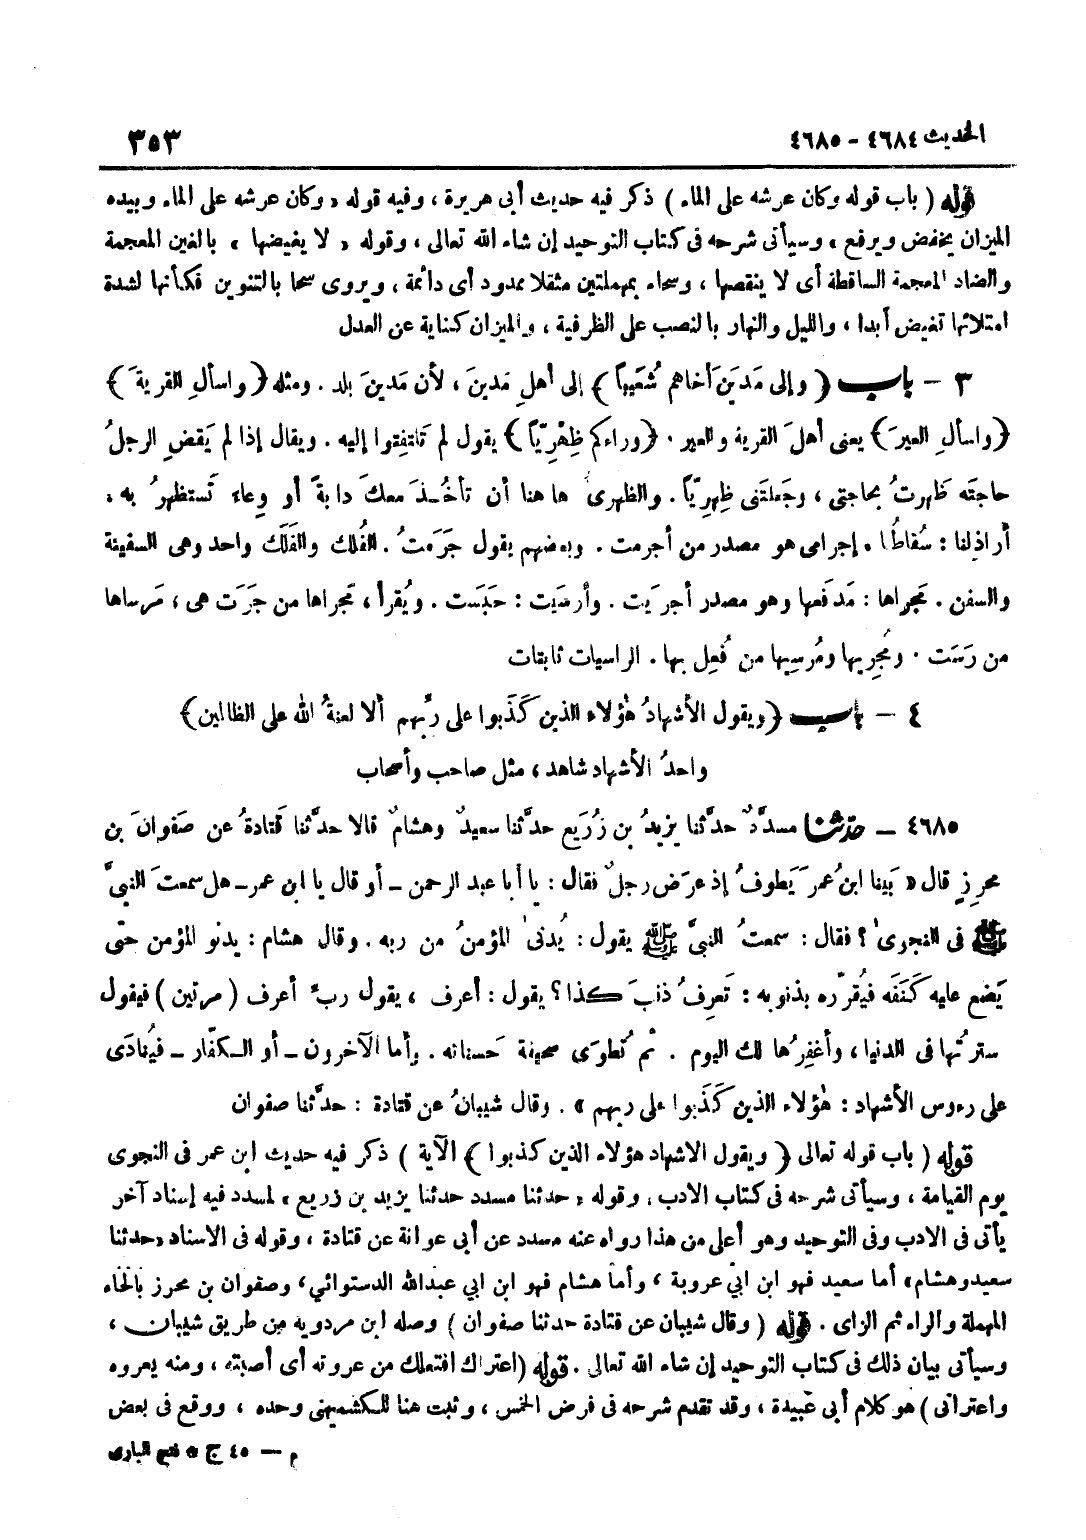 الحديث ٤٦٨٤ - ٤٦٨٥
٣٥٣
قوله ( باب قوله وكان عرشه على الماء ) ذكر فيه حديث أبى هريرة ، وفيه قوله « وكان عرشه على الماء وبيده
الميزان يخفض ويرفع » وسيأتى شرحه فى كتاب التوحيد إن شاء الله تعالى ، وقوله « لا يغيضها » بالغين المعجمة
والضاد المعجمة الساقطة أى لا ينقصها ، وسحاء بمهملتين مثقلا ممدود أى دائمة ، ويروى سحا بالتنوين فكأنها لشدة
امتلائها تغيض أبدا ، والليل والنهار بالنصب على الظرفية ، والميزان كناية عن العدل
٣ - باب ﴿ وإلى مَدينَ أخاهم شُعَيباً ﴾ إلى أهلِ مَدينَ ، لأن مَدينَ بلد . ومثله ﴿ واسألِ القريةَ ﴾
﴿ واسألِ العيرَ ﴾ يعنى أهلَ القرية والعير . ﴿ وراءكم ظِهْرِيّاً ﴾ يقول لم تَلتفِتوا إليه . ويقال إذا لم يَقضِ الرجلُ
حاجتَه ظهرتُ بحاجتى ، وجَعلتَنى ظِهرِيّاً . والظهرىُّ ها هنا أن تأخُـذَ معكَ دابةً أو وِعاء تَستظهرُ به .
أراذِلنا : سُقاطُنا . إجرامى هو مصدر من أجرمت . وبعضهم يقول جَرَمتُ . الفُلك والفَلَك واحد وهى السفينة
والسفن . مَجراها : مَدفَعها وهو مصدر أجرَيت . وأرسَيت : حَبَست . ويُقرأ ، مَجراها من جَرَت هى ، مَرساها
من رَسَت . ومُجرِيها ومُرسِيها من فُعِل بها . الراسيات ثابتات
٤ - باب ﴿ ويقول الأشهادُ هٰؤلاء الذين كَذَبوا على ربِّهم ألا لعنةُ الله على الظالمين ﴾
واحدُ الأشهاد شاهد ، مثل صاحب وأصحاب
٤٦٨٥ - حدّثنا مسدَّدٌ حدَّثنا يزيدُ بن زُرَيع حدَّثنا سعيدٌ وهشامٌ قالا حدَّثنا قَتادةُ عن صَفوانَ بن
محرِزٍ قال « بَينا ابنُ عمرَ يَطوفُ إذ عرَضَ رجلٌ فقال : يا أبا عبد الرحمن - أو قال يا ابن عمر - هل سمعتَ النبيَّ
ﷺ فى النجوىٰ ؟ فقال : سمعتُ النبيَّ ﷺ يقول : يُدنىٰ المؤمنُ من ربه . وقال هشام : يدنو المؤمن حتى
يَضع عليه كَنَفَه فيُقرّره بذنوبه : تَعرِفُ ذنبَ كذا ؟ يقول : أعرف ، يقول ربِّ أعرف ( مرتين ) فيقول
سترتُها فى الدنيا ، وأغفِرُها لك اليوم . ثم تُطوَى صحيفة حَسناته . وأما الآخرون - أو الكفّار - فيُنادَى
على رءوس الأشهاد : هٰؤلاء الذين كَذَبوا على ربهم » . وقال شيبانُ عن قتادة : حدَّثنا صفوان
قوله ( باب قوله تعالى ﴿ ويقول الاشهاد هؤلاء الذين كذبوا ﴾ الآية ) ذكر فيه حديث ابن عمر فى النجوى
يوم القيامة ، وسيأتى شرحه فى كتاب الادب . وقوله « حدثنا مسدد حدثنا يزيد بن زريع » لمسدد فيه إسناد آخر
يأتى فى الادب وفى التوحيد وهو أعلى من هذا رواه عنه مسدد عن أبى عوانة عن قتادة ، وقوله فى الاسناد « حدثنا
سعيد وهشام » أما سعيد فهو ابن ابي عروبة ، وأما هشام فهو ابن ابي عبدالله الدستوائي ، وصفوان بن محرز بالحاء
المهملة والراء ثم الزاى . قوله ( وقال شيبان عن قتادة حدثنا صفوان ) وصله ابن مردويه من طريق شيبان ،
وسيأتى بيان ذلك فى كتاب التوحيد إن شاء الله تعالى . قوله ( اعتراك افتعلك من عروته أى أصبته ، ومنه يعروه
واعترانى ) هو كلام أبى عبيدة ، وقد تقدم شرحه فى فرض الخمس ، وثبت هنا للكشميهنى وحده ، ووقع فى بعض
م - ٤٥ ج ٨ فتح البارى